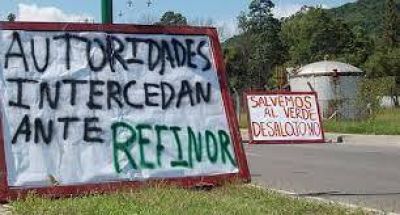 AUTORIDADES
INTERCEDAN
ANTE REFINOR
SALVEMOS
AL VERDE
DESALOJO NO